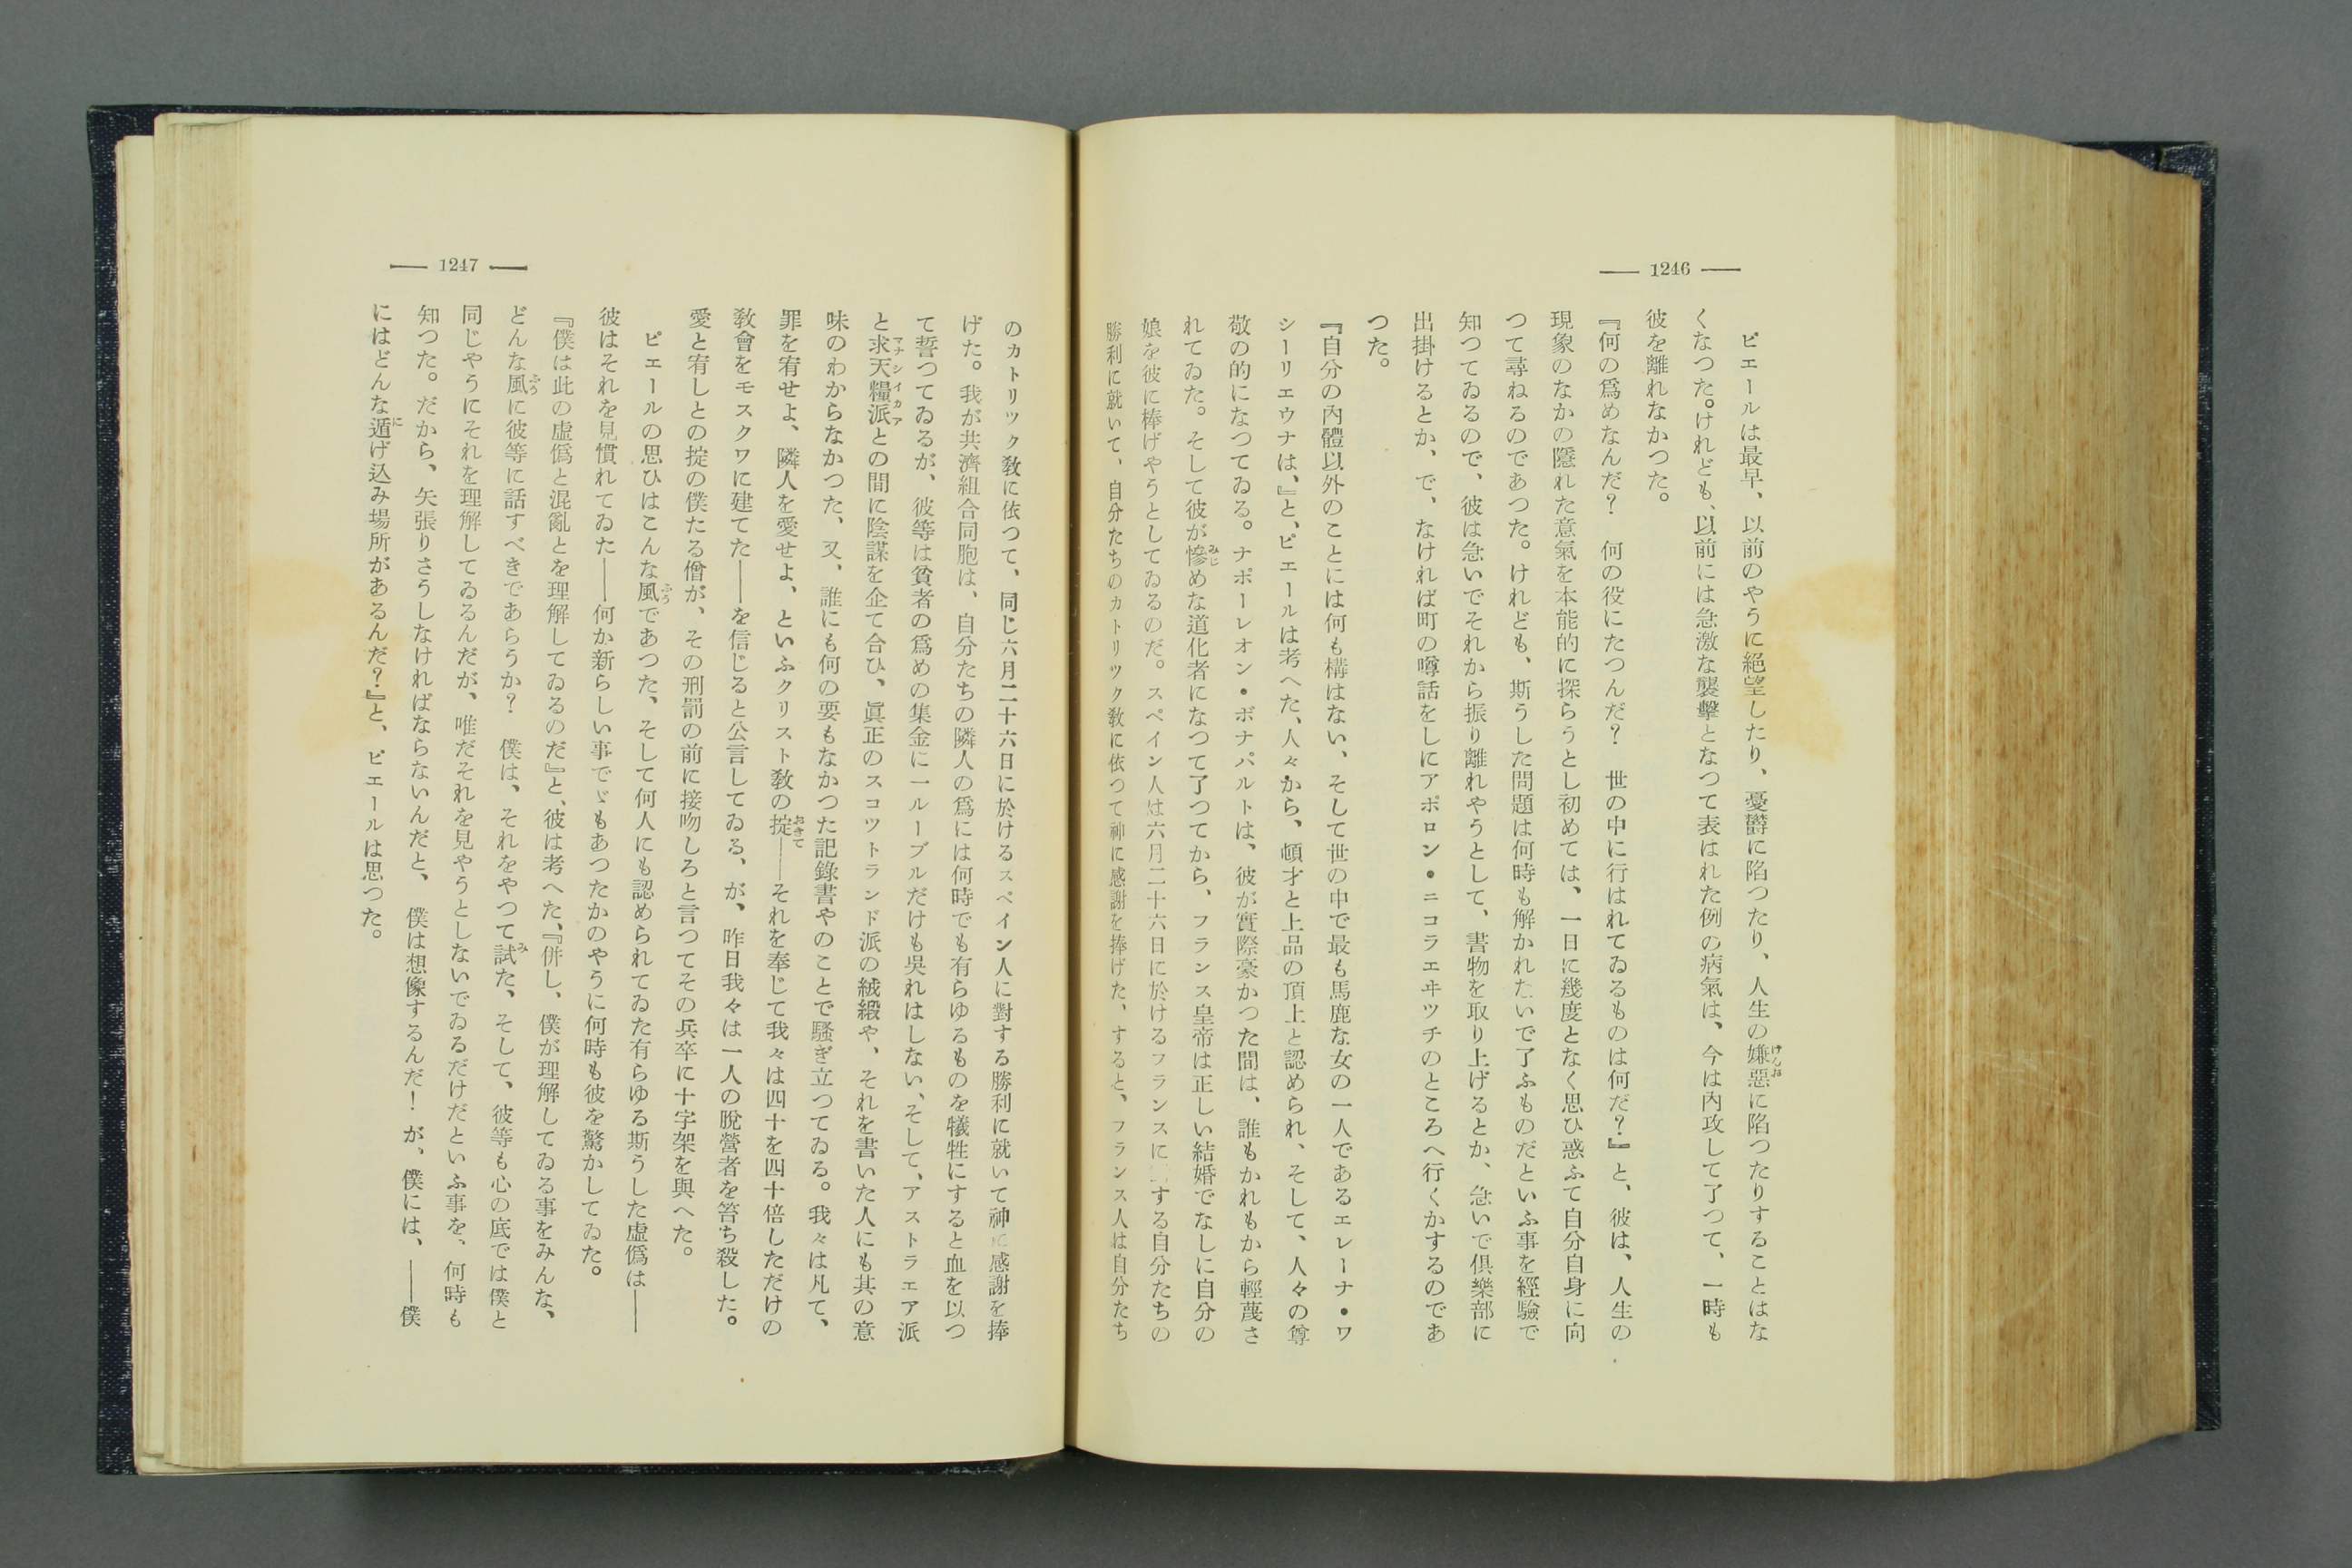 — 1246 —
ピエールは最早、以前のやうに絕望したり、憂欝に陷つたり、人生の嫌惡に陷つたりすることはな
くなつた。けれども、以前には急激な襲擊となつて表はれた例の病氣は、今は內攻して了つて、一時も
彼を離れなかつた。
『何の爲めなんだ？　何の役にたつんだ？　世の中に行はれてゐるものは何だ？』と、彼は、人生の
現象のなかの隱れた意氣を本能的に探らうとし初めては、一日に幾度となく思ひ惑ふて自分自身に向
つて尋ねるのであつた。けれども、斯うした問題は何時も解かれないで了ふものだといふ事を經驗で
知つてゐるので、彼は急いでそれから振り離れやうとして、書物を取り上げるとか、急いで俱樂部に
出掛けるとか、で、なければ町の噂話をしにアポロン・ニコラエヰツチのところへ行くかするのであ
つた。
『自分の內體以外のことには何も構はない、そして世の中で最も馬鹿な女の一人であるエレーナ・ワ
シーリエウナは、』と、ピエールは考へた、人々から、頓才と上品の頂上と認められ、そして、人々の尊
敬の的になつてゐる。ナポーレオン・ボナパルトは、彼が實際豪かつた間は、誰もかれもから輕蔑さ
れてゐた。そして彼が慘めな道化者になつて了つてから、フランス皇帝は正しい結婚でなしに自分の
娘を彼に捧げやうとしてゐるのだ。スペイン人は六月二十六日に於けるフランスにする自分たちの
勝利に就いて、自分たちのカトリツク敎に依つて神に感謝を捧げた、すると、フランス人は自分たち
— 1247 —
のカトリック敎に依つて、同じ六月二十六日に於けるスペイン人に對する勝利に就いて神に感謝を捧
げた。我が共濟組合同胞は、自分たちの隣人の爲には何時でも有らゆるものを犧牲にすると血を以つ
て誓つてゐるが、彼等は貧者の爲めの集金に一ルーブルだけも吳れはしない、そして、アストラエア派
と求天糧派との間に陰謀を企て合ひ、眞正のスコツトランド派の絨緞や、それを書いた人にも其の意
味のわからなかつた、又、誰にも何の要もなかつた記錄書やのことで騷ぎ立つてゐる。我々は凡て、
罪を宥せよ、隣人を愛せよ、といふクリスト敎の掟——それを奉じて我々は四十を四十倍しただけの
敎會をモスクワに建てた——を信じると公言してゐる、が、昨日我々は一人の脫營者を笞ち殺した。
愛と宥しとの掟の僕たる僧が、その刑罰の前に接吻しろと言つてその兵卒に十字架を與へた。
ピエールの思ひはこんな風であつた、そして何人にも認められてゐた有らゆる斯うした虛僞は——
彼はそれを見慣れてゐた——何か新らしい事でゞもあつたかのやうに何時も彼を驚かしてゐた。
『僕は此の虛僞と混亂とを理解してゐるのだ』と、彼は考へた、『併し、僕が理解してゐる事をみんな、
どんな風に彼等に話すべきであらうか？　僕は、それをやつて試た、そして、彼等も心の底では僕と
同じやうにそれを理解してゐるんだが、唯だそれを見やうとしないでゐるだけだといふ事を、何時も
知つた。だから、矢張りさうしなければならないんだと、僕は想像するんだ！が、僕には、——僕
にはどんな遁げ込み場所があるんだ？』と、ピエールは思つた。